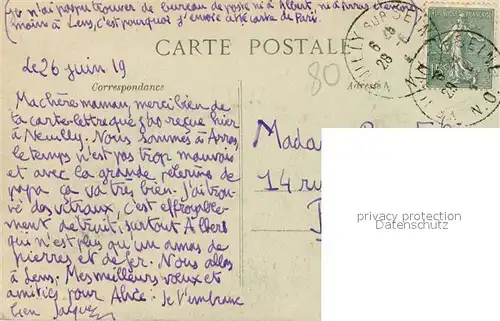 (je n'ai pas pu trouver de bureau de poste ni à Albert, ni à Arras et encore
moins à Lens, c'est pourquoi j'envoie cette carte de Paris.
CARTE POSTALE
le 26 juin 19
80
Correspondance
Adresse
Ma chère maman, merci bien de
ta carte-lettre que j'ao reçue hier
à Neuilly. Nous sommes à Arras
le temps n'est pas trop mauvais
et avec la grande pélerine de
papa ça va très bien. J'ai trou-
vé des vitraux, c'est effroyable-
ment détruit, surtout Albert
qui n'est plus qu'un amas de
pierres et de fer. Nous allons
à Lens. Mes meilleurs vœux et
amitiés pour Alice. Je t'embrasse
bien Jacques
Madame
14 rue
NEUILLY SUR SEINE
privacy protection
Datenschutz